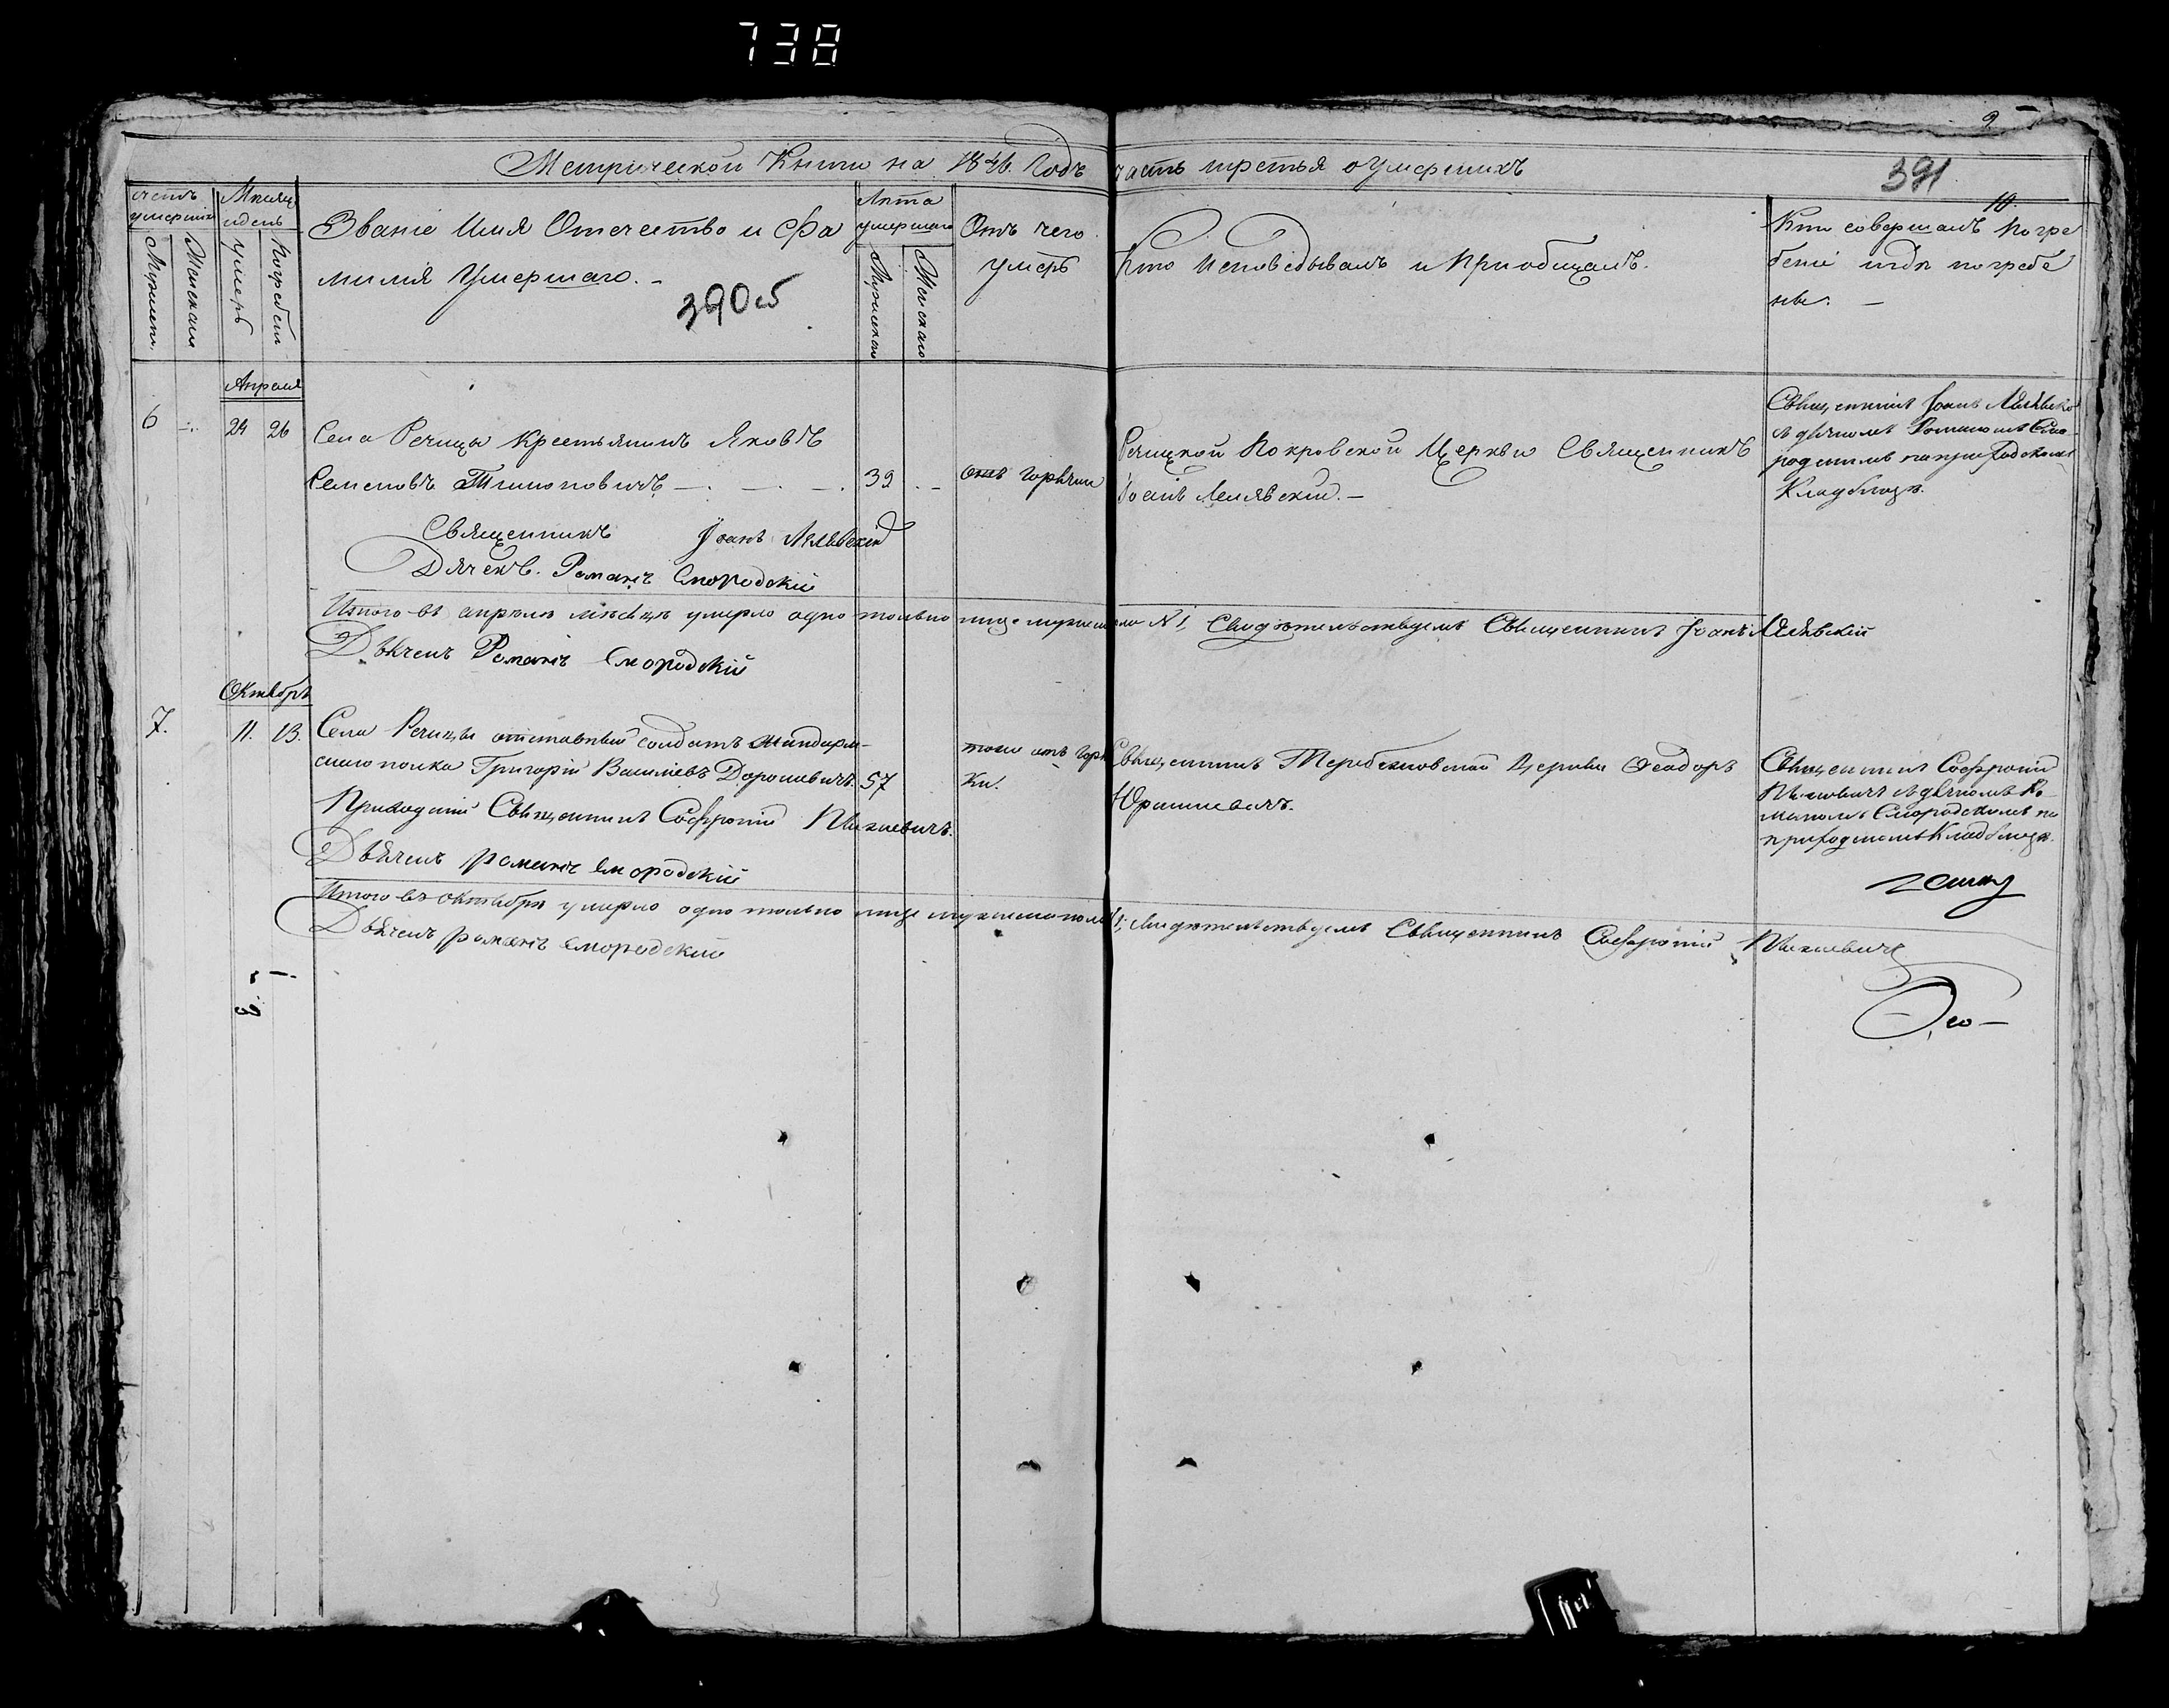 738
9
Метрической Книги на 1846. Годъ часть третья о умершихъ
391
счетъ умершихъ
Мужеска.
Женска
Месяцъ и день
умеръ
Погребенъ
Званіе Имя Отечество и Фа
милія Умершаго. -
390об
Лета умершаго
Мужескаго
Женскаго
Отъ чего
умеръ
Кто Исповедывалъ и Приобщалъ.
10.
Кто совершалъ Погре
беніе и где погребе
ны. -
Апреля
6 24 26
Села Речицы Крестьянинъ Яковъ
Семеновъ Тимоновичъ - . - . - . 39 . -
отъ горячки
Речицкой Покровской Церкви Священникъ
Іоанъ Лелявскій. -
Священникъ Іоанъ Лелявско
съ дячкомъ Романомъ Смо
родскимъ на приходскомъ
Кладбищѣ.
Священникъ Іоанъ Лелявскій
Дячекъ. Романъ Смородскій
Итого въ апрѣлѣ мѣсяцѣ умерло одно только лице мужеска пола N 1, Свидѣтельствуемъ Священникъ Іоанъ Лелявскій
Дьячекъ Романъ Смородскій
Октябрь
7. 11. 13.
Села Речицы отставный солдатъ Жандарм-
скаго полка Григорій Василіевъ Дорошевичъ. 57
тоже отъ горя
чки.
Священникъ Теребежовской Церкви Феодоръ
Юрашкевичъ.
Священникъ Софроній
съ дячкомъ Ро-
маномъ Смородскимъ на
приходскомъ Кладбищѣ.
Приходскій Священникъ Софроній
Дьячекъ Романъ Смородскій
Итого въ октябрѣ умерло одно только лице мужеска пола 1; свидѣтельствуемъ Священникъ Софроній
Дьячекъ Романъ Смородскій